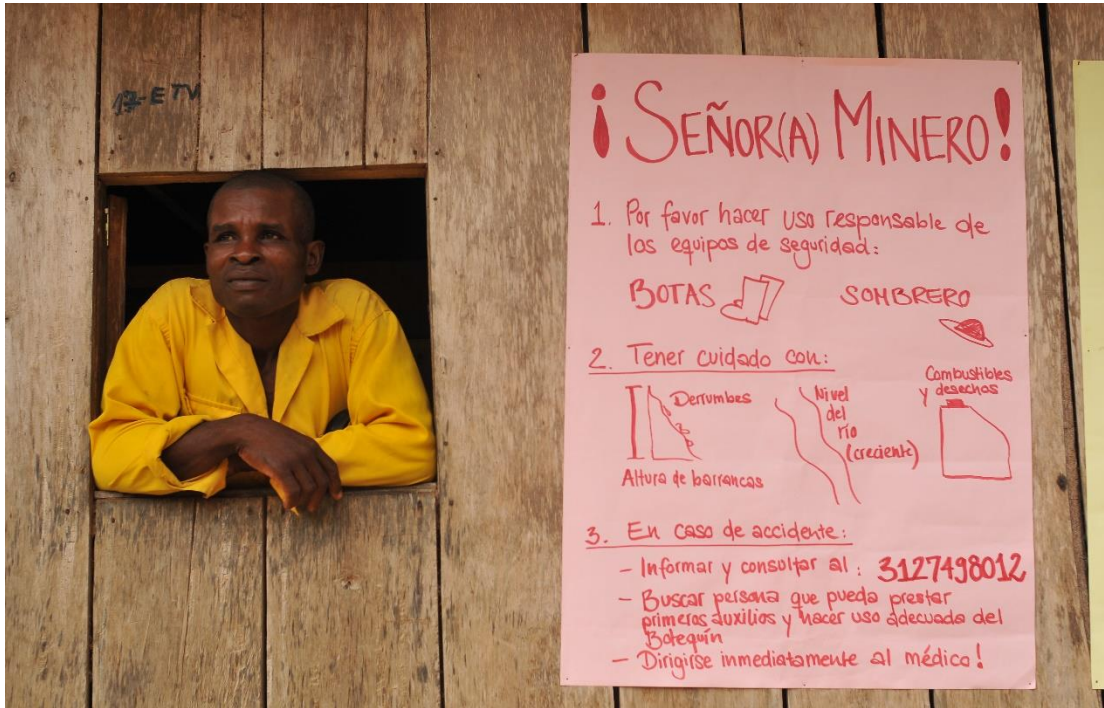 17-ETV
¡SEÑOR(A) MINERO!
1. Por favor hacer uso responsable de
los equipos de seguridad:
BOTAS SOMBRERO
2. Tener cuidado con:
Derrumbes
Altura de barrancas
Nivel
del
río
(creciente)
Combustibles
y desechos
3. En caso de accidente:
- Informar y consultar al: 3127498012
- Buscar persona que pueda prestar
primeros auxilios y hacer uso adecuado del
Botequín
- Dirigirse inmediatamente al médico!